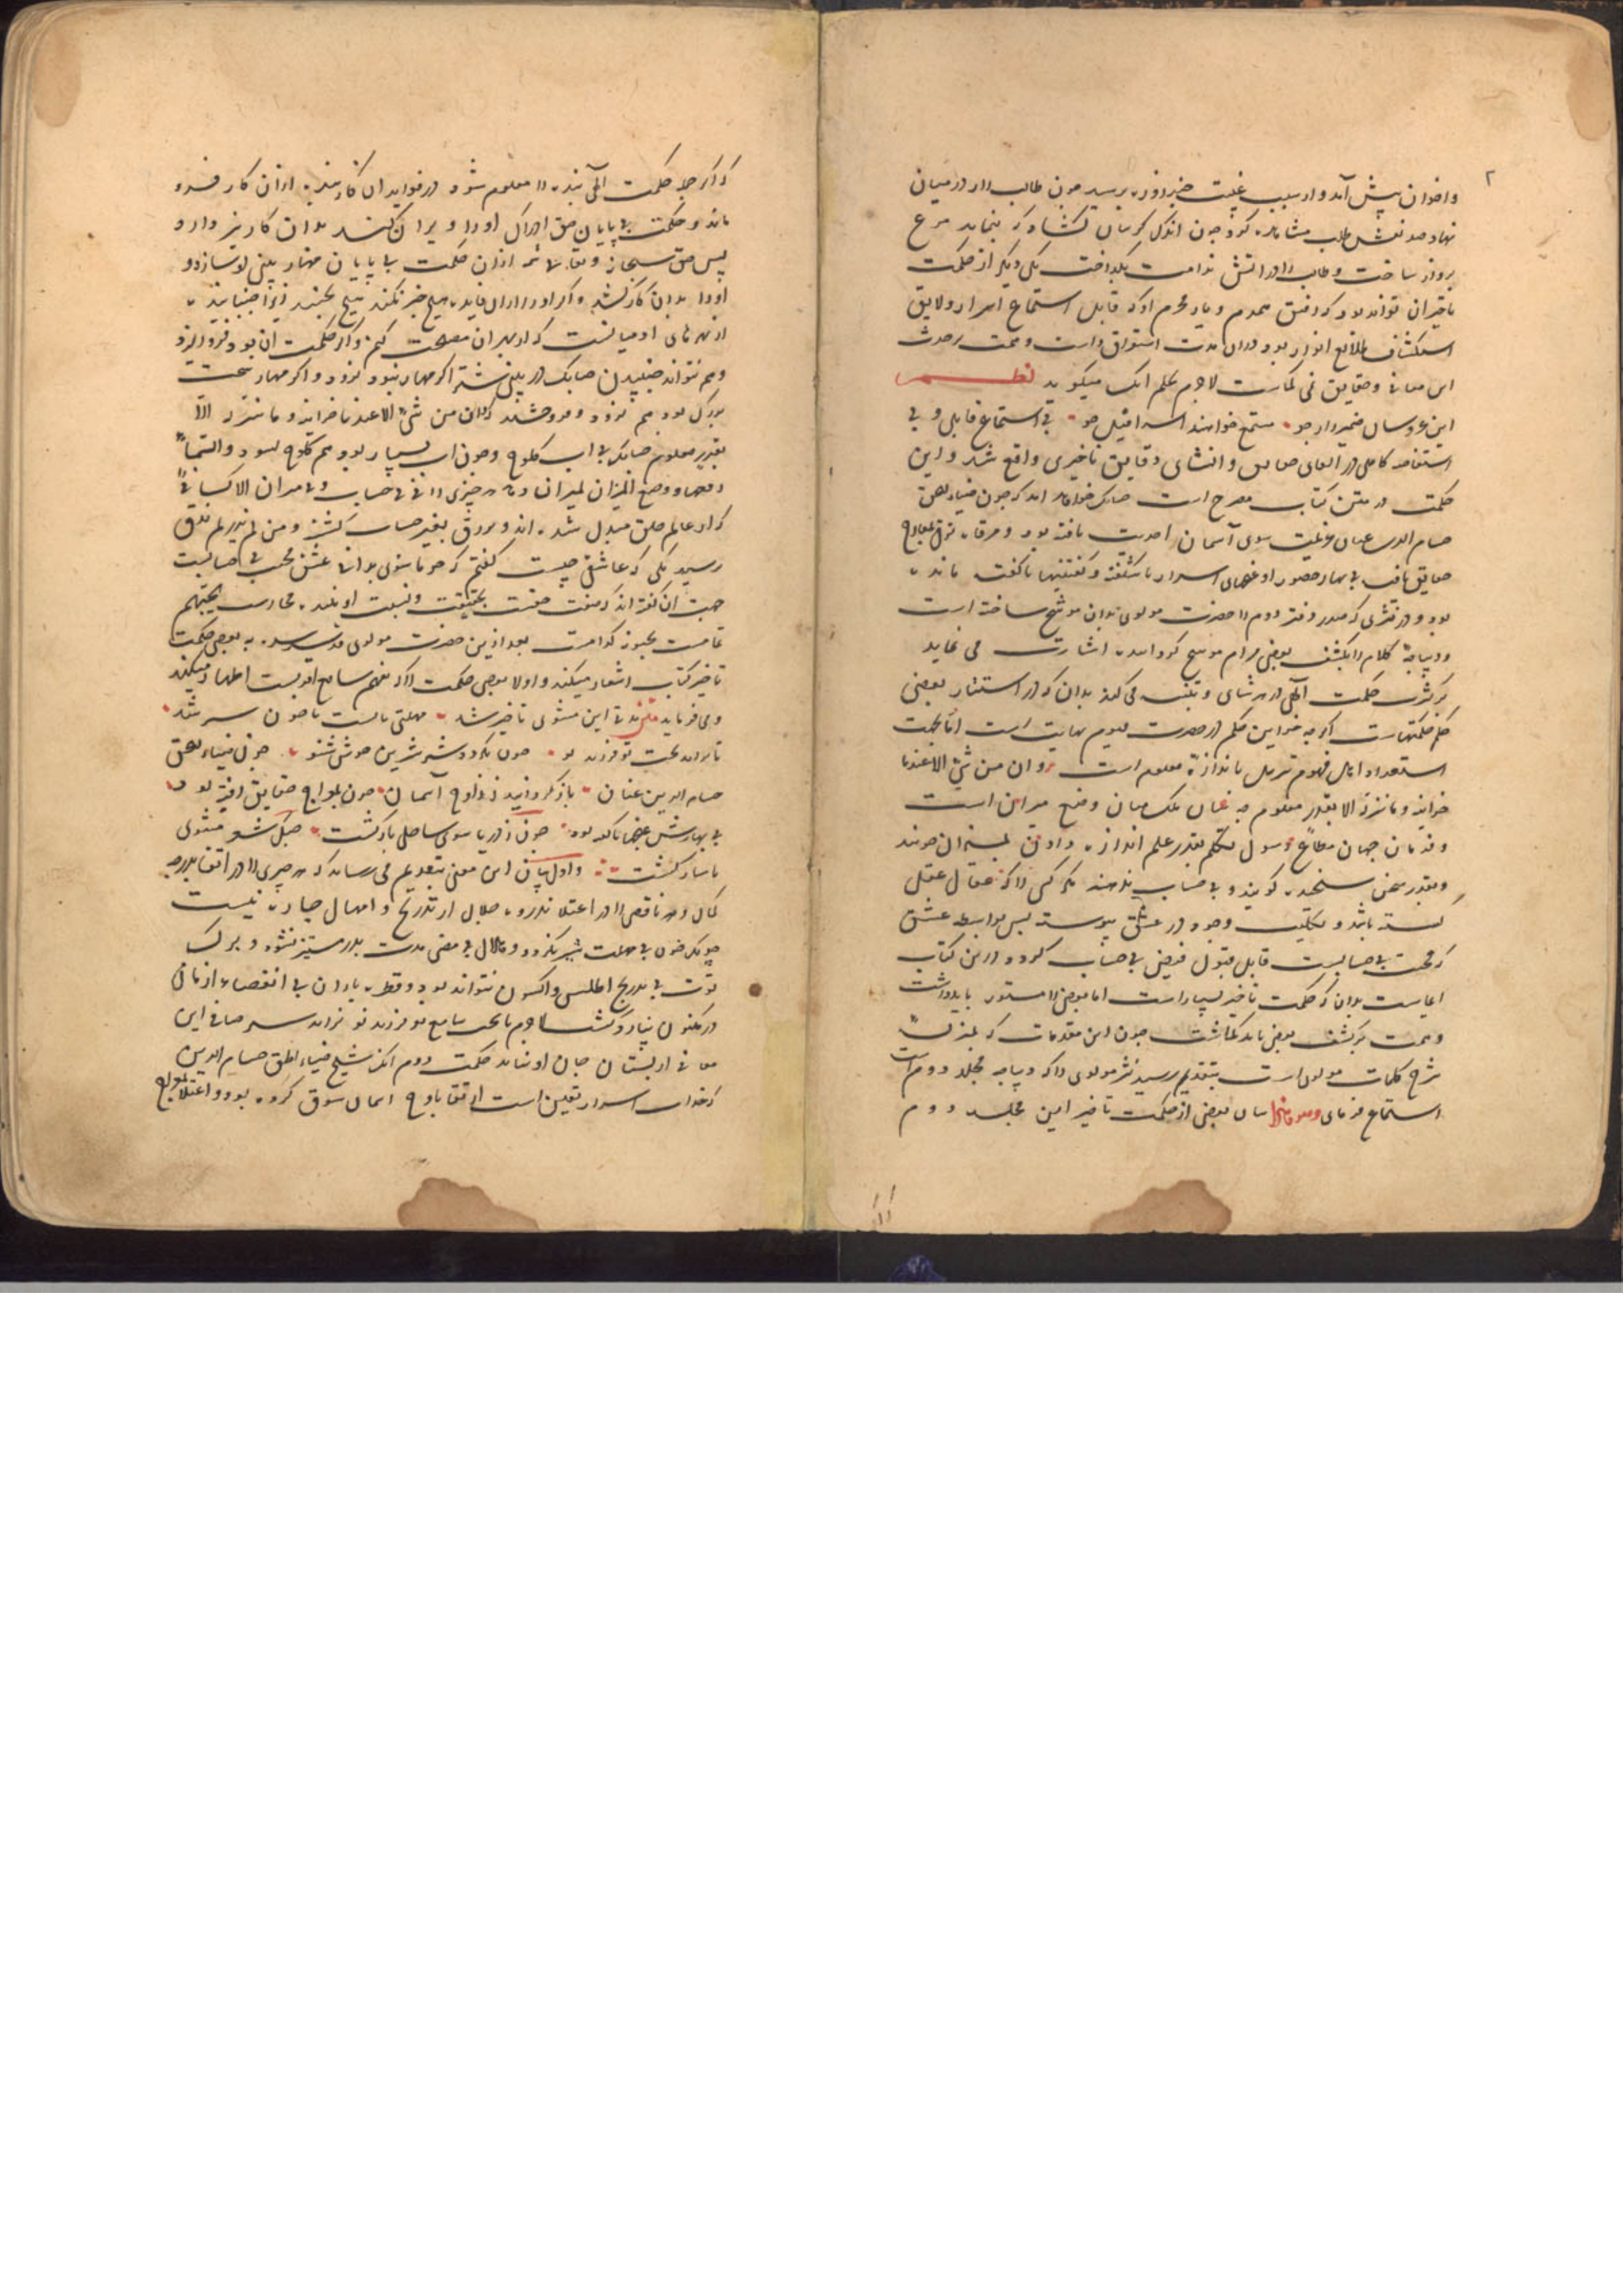 ۲
واخوان پیش آمد و از سبب غیبت خبر او پرسید چون طالب را در میان
نهاد خود نقش طلب مشاهده کرد چون اندک گریبان بگشاد که بنماید مرغ
پرواز ساخت و طالب را در آتش ندامت بگداخت یکی دیگر از حکمت
تاخیر آن تواند بود که رفیق همدم و یار محرم او که قابل استماع اسرار و لایق
استکشاف طلایع انوار بود در آن مدت استغراق داشت و همت بر حدث
این معانی و حقایق نمی گماشت لاجرم بحکم آنک میگوید نظم
این عروسان ضمیر را بر جو مستمع خواهند اسرافیل خو بی استماع قابلی و بی
استفاضه کاملی در القای حقایق و انشای دقایق تاخیری واقع شد و این
حکمت در متن کتاب مصرح است چون ضیاء الحق
حسام الدین عنان عزیمت سوی آسمان احدیت تافته بود
حقایق یافته بی بهار حضور او غنچهای اسرار ناشکفته و گفتنیها ناگفته مانده
بود و در نثری که صدر دفتر دوم را حضرت مولوی بدان موشح ساخته است
و دیباجه کلام را بکشف بعضی مرام موشح گردانیده اشارت می نماید
بر کثرت حکمت الهی در هر شای و تنبیه می کند بدان که در استتار بعضی
حکم حکمتهاست اگر چه خزاین حکم در حضرت قیوم بی نهایت است اما بجهت
استعداد اهل فهوم تنزیل باندازه معلوم است و ان من شی الا عندنا
خزاینه و ما ننزله الا بقدر معلوم وضع میزان است
و فرمان جهان مطاع رسول تکلم بقدر علم اندازه دادن
و بقدر سخن سنجیده گویند و بی حساب ندهند مگر کسی را که عقال عقل
گسسته باشد و بکلیت وجود در عشق پیوسته پس بواسطه عشق
که محبت بی حسابست قابل قبول فیض بی حساب گردد و درین کتاب
ایماست بدان که حکمت تاخیر بسیار است اما بعضی را مستور باید داشت
و همت بر کشف بعضی باید گماشت چون این مقدمات که بمنزلت
شرح کلمات مولوی است بتقدیم رسید نثر مولوی را که دیباجه مجلد دوم است
استماع فرمای بیان بعضی از حکمت تاخیر این مجلد دوم
که اگر جمله حکمت الهی بنده را معلوم شود در فواید آن کار بنده از آن کار فرو
ماند و حکمت بی پایان حق ادراک او را ویران کند بدان کار نپردازد
پس حق سبحانه و تعالی شمه از آن حکمت بی پایان مهار بینی او سازد و
او را بدان کار کشد و اگر او را از آن فایده هیچ خبر نکند هیچ نجنبد زیرا جنباننده
از بهرهای آدمیانست که از بهر آن مصلحت کنیم و اگر حکمت آن بر وی فرو ریزد
و هم نتواند جنبیدن چنانک در بینی شتر اگر مهار نبود نرود و اگر مهار سخت
بزرگ بود هم نرود و فرو خسبد و ان من شی الا عندنا خزاینه و ما ننزله الا
بقدر معلوم چنانک بی آب کلوخ و چون آب بسیار بود هم کلوخ نشود والسماء
رفعها و وضع المیزان بمیزان دهد هر چیزی را نه بی حساب و بی میزان الا کسانی را
که از عالم خلق مبدل شده اند و یرزق بغیر حساب گشته و من لم یذق لم یدر
پرسید یکی که عاشقی چیست گفتم که چو ما شوی بدانی عشق محبت بی حسابست
جهت آن گفته اند که صفت حقست بحقیقت و نسبت او ببنده مجازست یحبهم
تمامست یحبونه کدامست بعد ازین حضرت مولوی قدس سره به بعضی حکمت
تاخیر کتاب اشعار میکند و اولا بعضی حکمت را که تفهم سامع اقربست اظهار میکند
و می فرماید مدتی این مثنوی تاخیر شد مهلتی بایست تا خون شیر شد
تا نزاید بخت تو فرزند نو خون نگردد شیر شیرین خوش شنو چون ضیاء الحق
حسام الدین عنان باز گردانید ز اوج آسمان چون بمعراج حقایق رفته بود
بی بهارش غنچها ناکفته بود چون ز دریا سوی ساحل بازگشت چنگ شعر مثنوی
با ساز گشت و اول بیان این معنی بتقدیم می رساند که هر چیزی را در ارتقا بدرجه
کمال و هر ناقصی را در اعتلا بذروه جلال از تدریج و امهال چاره نیست
چونک خون بی مهلت شیر نگردد و هلال بی مضی مدت بدر مستنیر نشود و برگ
توت بی تدریج اطلس و اکسون نتواند بود و قطره باران بی انقضاء ازمان
در مکنون نیارد گشت لاجرم تا بخت سامع تو فرزند نو نزاید سر صافی این
معانی از پستان جان او نیاید حکمت دوم آنک شیخ ضیاء الحق حسام الدین
که خدای اسرار تعین است ارتقا باوج آسمان سوق کرده بود و اعتلا بمعراج